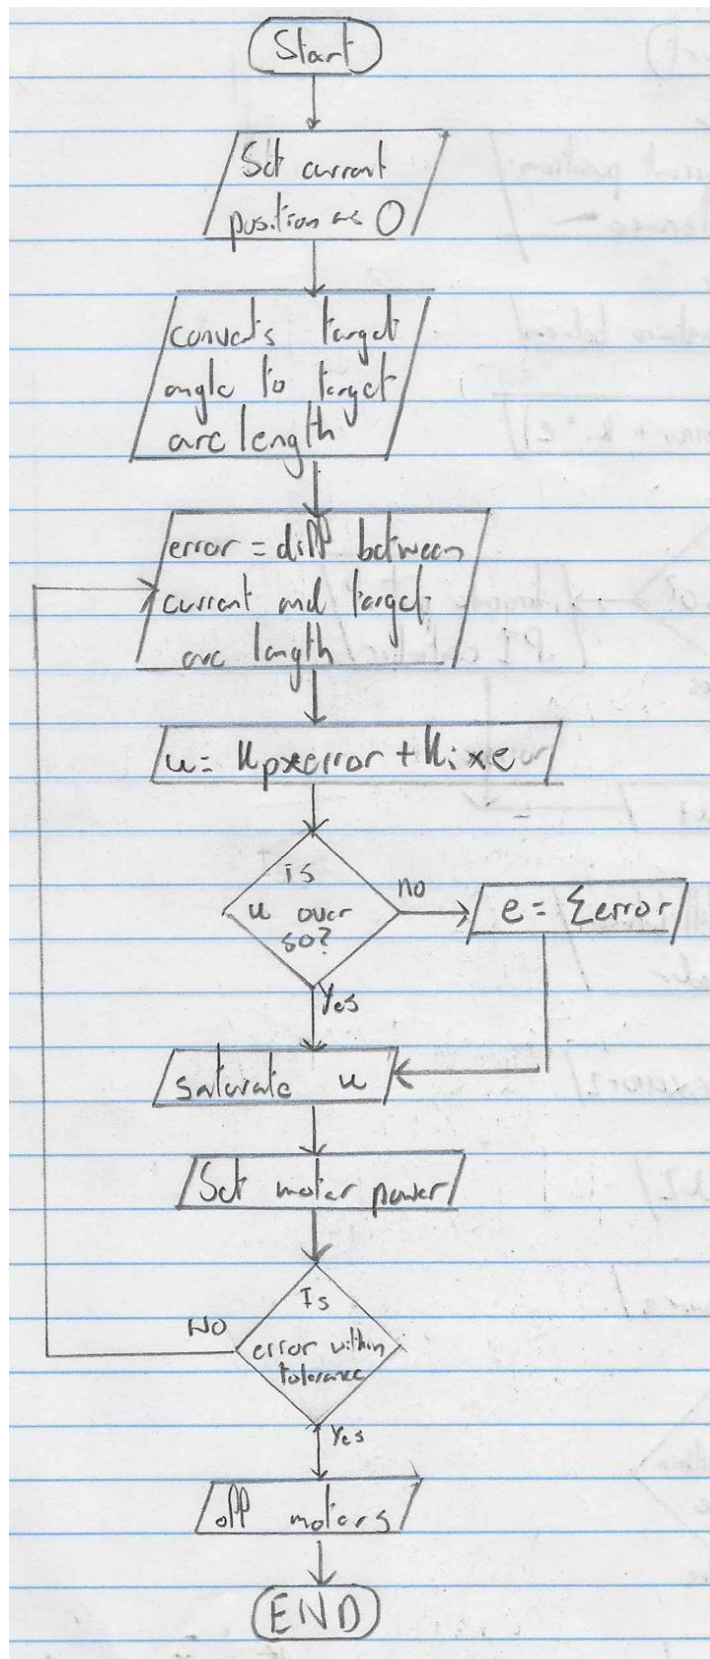 Start
Set current
position as 0
converts target
angle to target
arc length
error = diff between
current and target
arc length
u = Kp×error + Ki×e
is
u over
50?
no
e = Σerror
Yes
saturate u
Set motor power
Is
error within
tolerance
NO
Yes
off motors
END